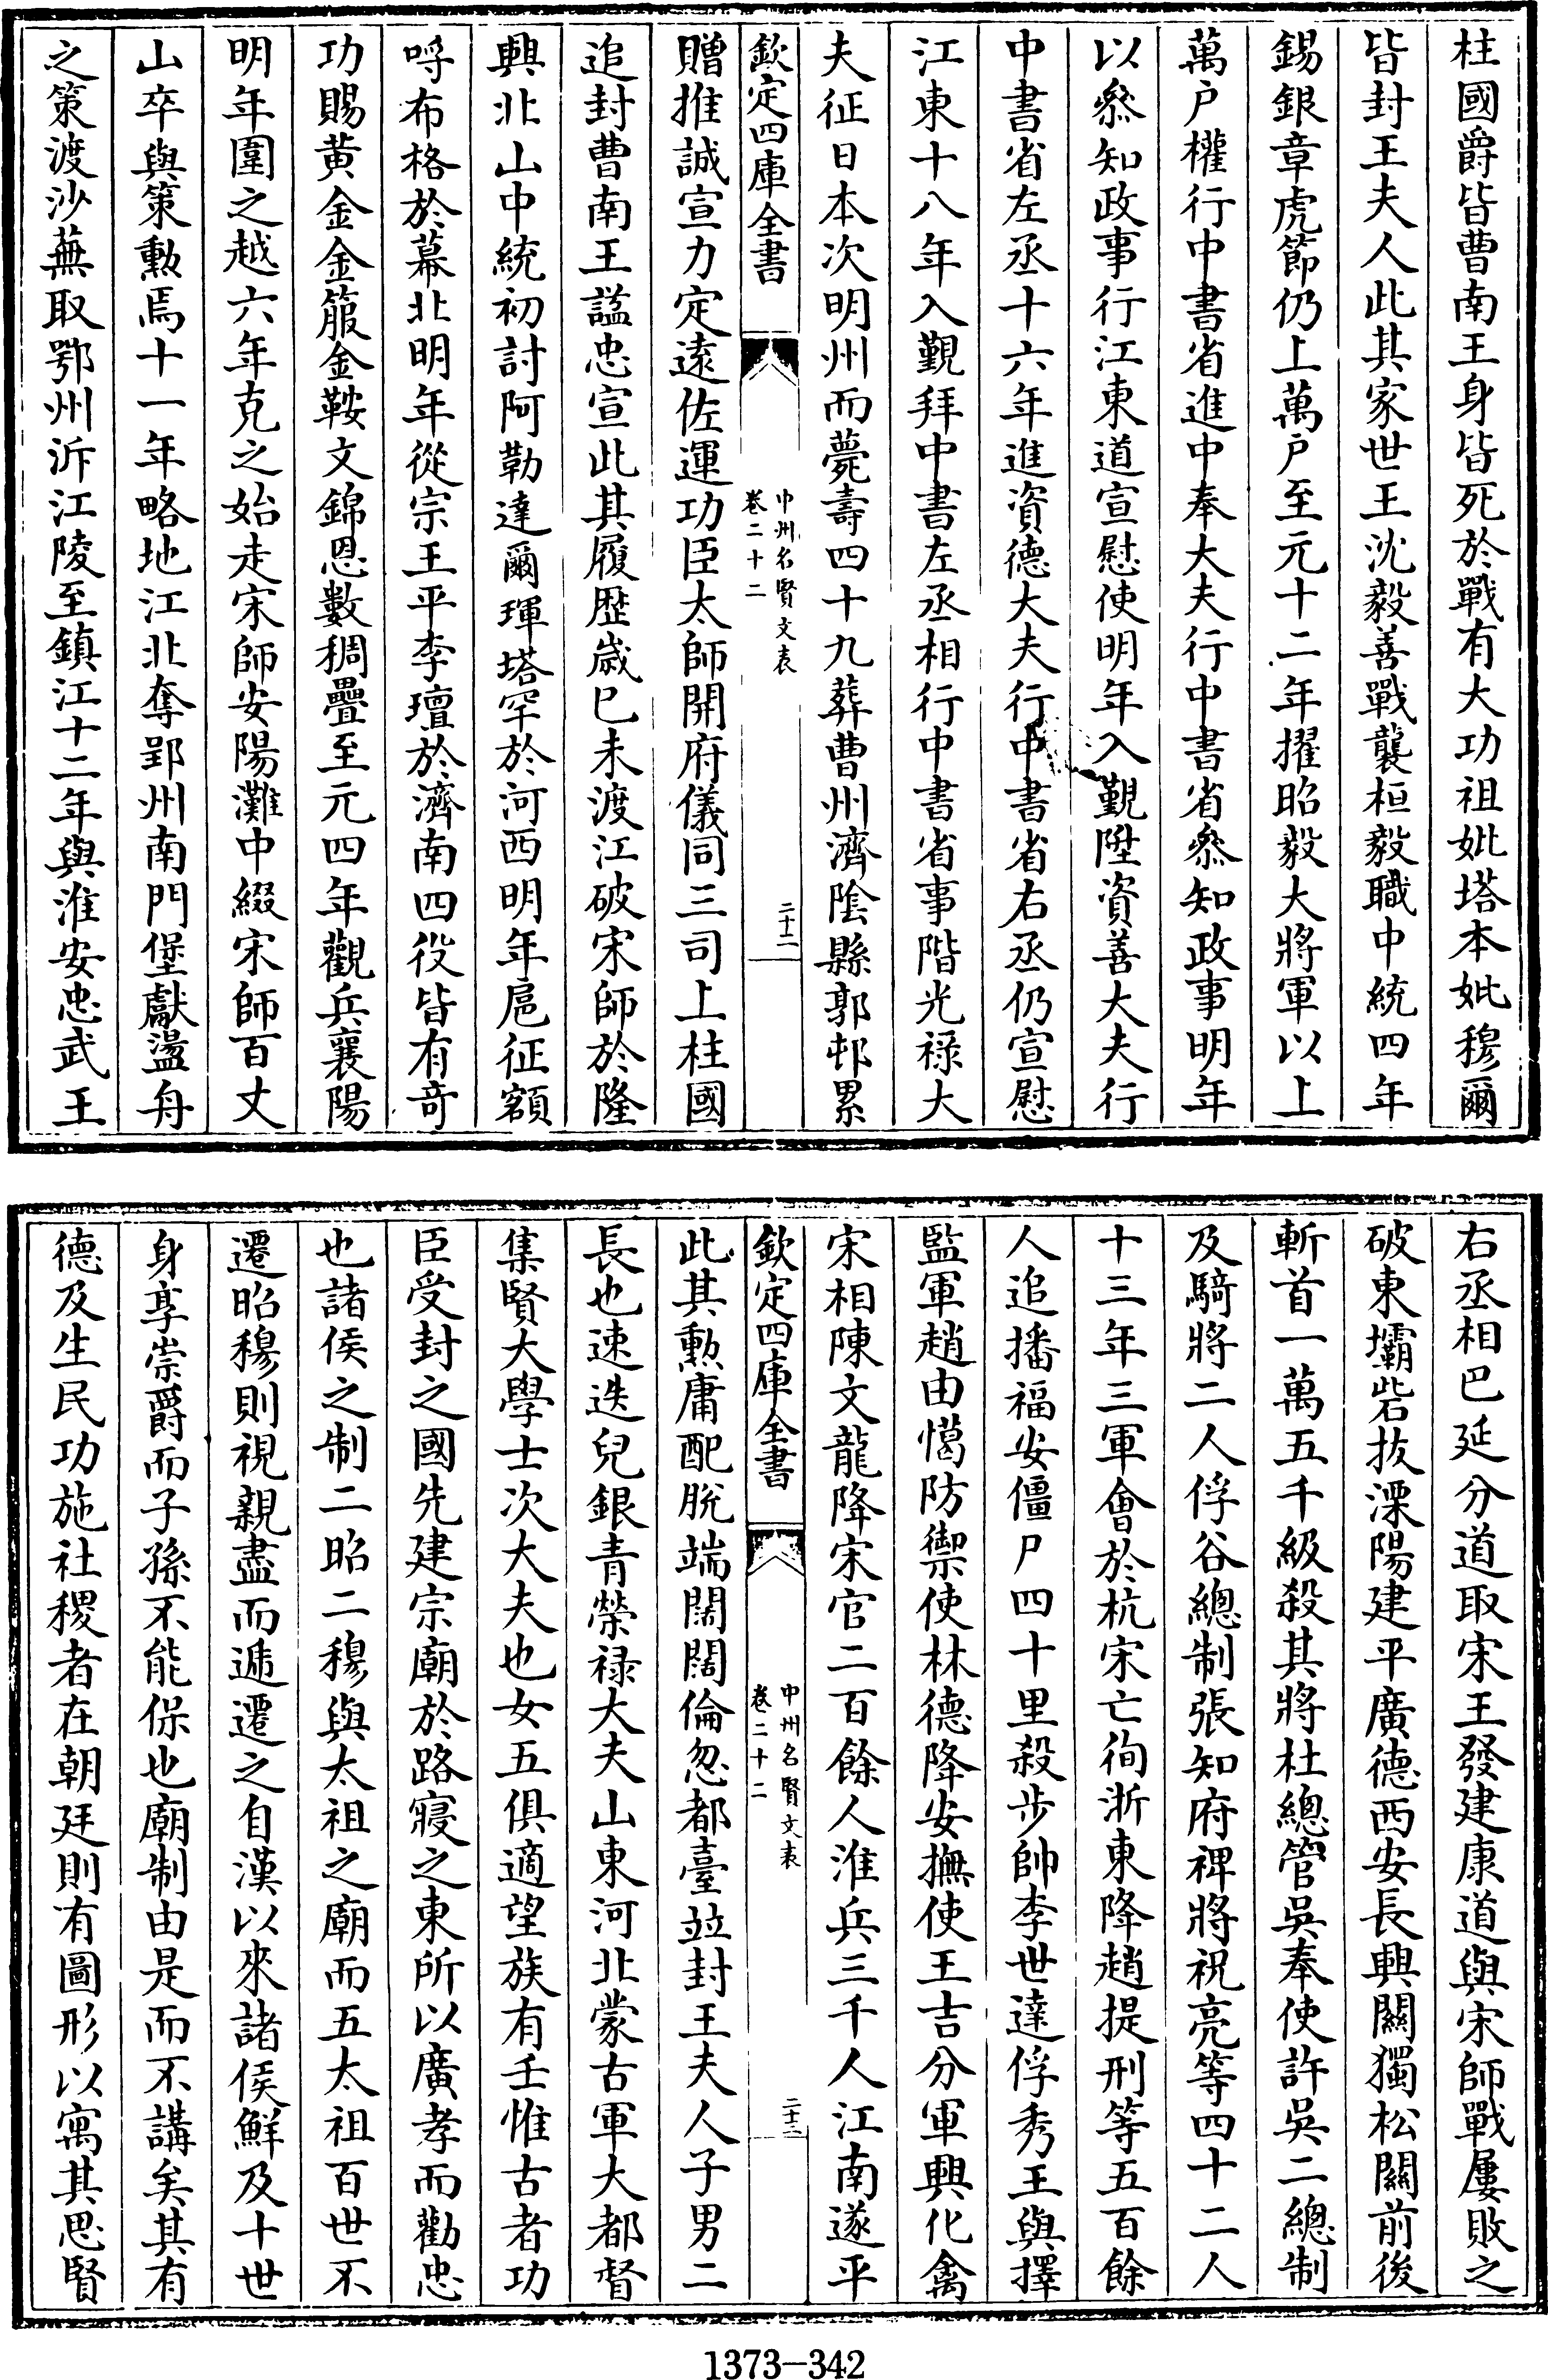 柱國爵皆曹南王身皆死於戰有大功祖妣塔本妣穆爾
皆封王夫人此其家世王沈毅善戰襲桓毅職中統四年
錫銀章虎節仍上萬戸至元十二年擢昭毅大將軍以上
萬戸權行中書省進中奉大夫行中書省叅知政事明年
以叅知政事行江東道宣慰使明年入覲陞資善大夫行
中書省左丞十六年進資德大夫行中書省右丞仍宣慰
江東十八年入覲拜中書左丞相行中書省事階光禄大
夫征日本次明州而薨壽四十九葬曹州濟隂縣郭邨累
欽定四庫全書
中州名賢文表
卷二十二
二十二
贈推誠宣力定逺佐運功臣太師開府儀同三司上柱國
追封曹南王謚忠宣此其履歴嵗已未渡江破宋師於隆
興北山中統初討阿勒達爾琿塔罕於河西明年扈征額
哷布格於幕北明年從宗王平李璮於濟南四役皆有竒
功賜黄金金箙金鞍文錦恩數稠疊至元四年觀兵襄陽
明年圍之越六年克之始走宋師安陽灘中綴宋師百丈
山卒與策勲焉十一年略地江北奪郢州南門堡獻盪舟
之策渡沙蕪取鄂州泝江陵至鎮江十二年與淮安忠武王
右丞相巴延分道取宋王發建康道與宋師戰屢敗之
破東壩砦抜溧陽建平廣德西安長興闗獨松闗前後
斬首一萬五千級殺其將杜總管吳奉使許吳二總制
及騎將二人俘谷總制張知府禆將祝亮等四十二人
十三年三軍會於杭宋亡徇浙東降趙提刑等五百餘
人追播福安僵尸四十里殺步帥李世達俘秀王與擇
監軍趙由𢠵防禦使林德降安撫使王吉分軍興化禽
宋相陳文龍降宋官二百餘人淮兵三千人江南遂平
欽定四庫全書
中州名賢文表
卷二十二
二十三
此其勲庸配脱端闊闊倫忽都臺竝封王夫人子男二
長也速迭兒銀青榮禄大夫山東河北蒙古軍大都督
集賢大學士次大夫也女五俱適望族有壬惟古者功
臣受封之國先建宗廟於路寢之東所以廣孝而勸忠
也諸侯之制二昭二穆與太祖之廟而五太祖百世不
遷昭穆則視親盡而遞遷之自漢以來諸侯鮮及十世
身享崇爵而子孫不能保也廟制由是而不講矣其有
德及生民功施社稷者在朝廷則有圖形以寓其思賢
1373-342